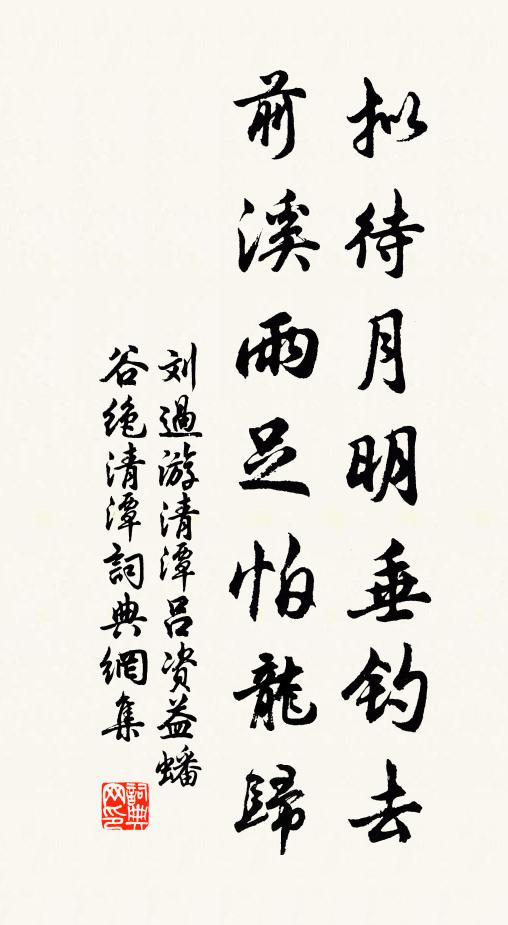 拟待月明垂钓去
前溪雨足怕龍歸
刘過游清潭吕资益蟠
谷绝清潭詞典網集
詞典网印